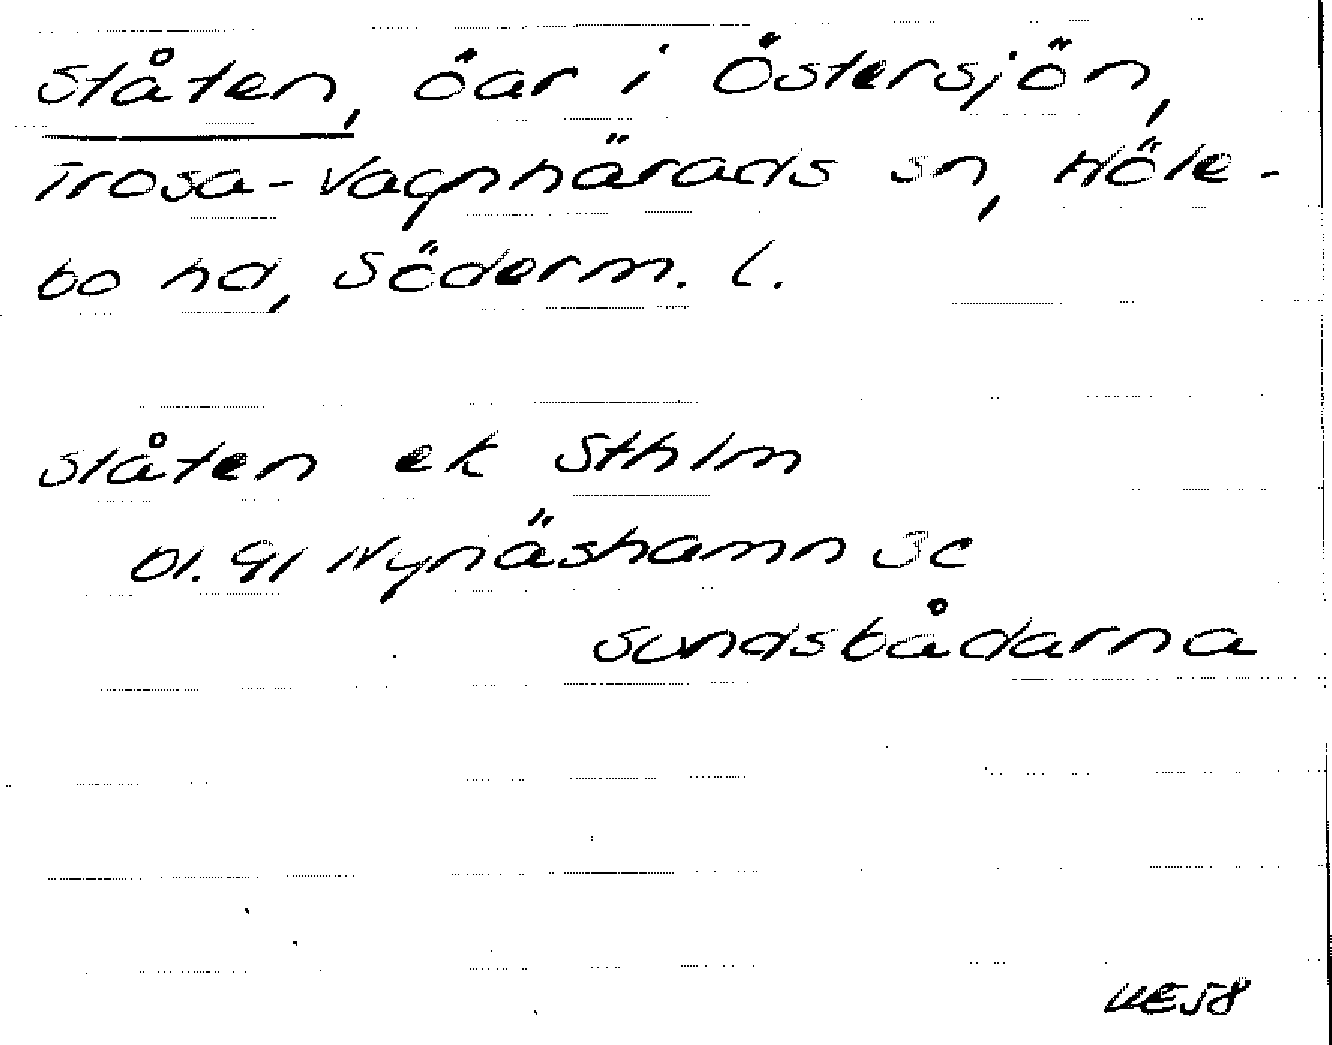 Ståten, öar i Östersjön,
Trosa-Vagnhärads sn, Höle-
bo hd, Söderm. l.
Ståten ek Sthlm
01. 9I Nynäshamn 3c
Sundsbådarna
UE58